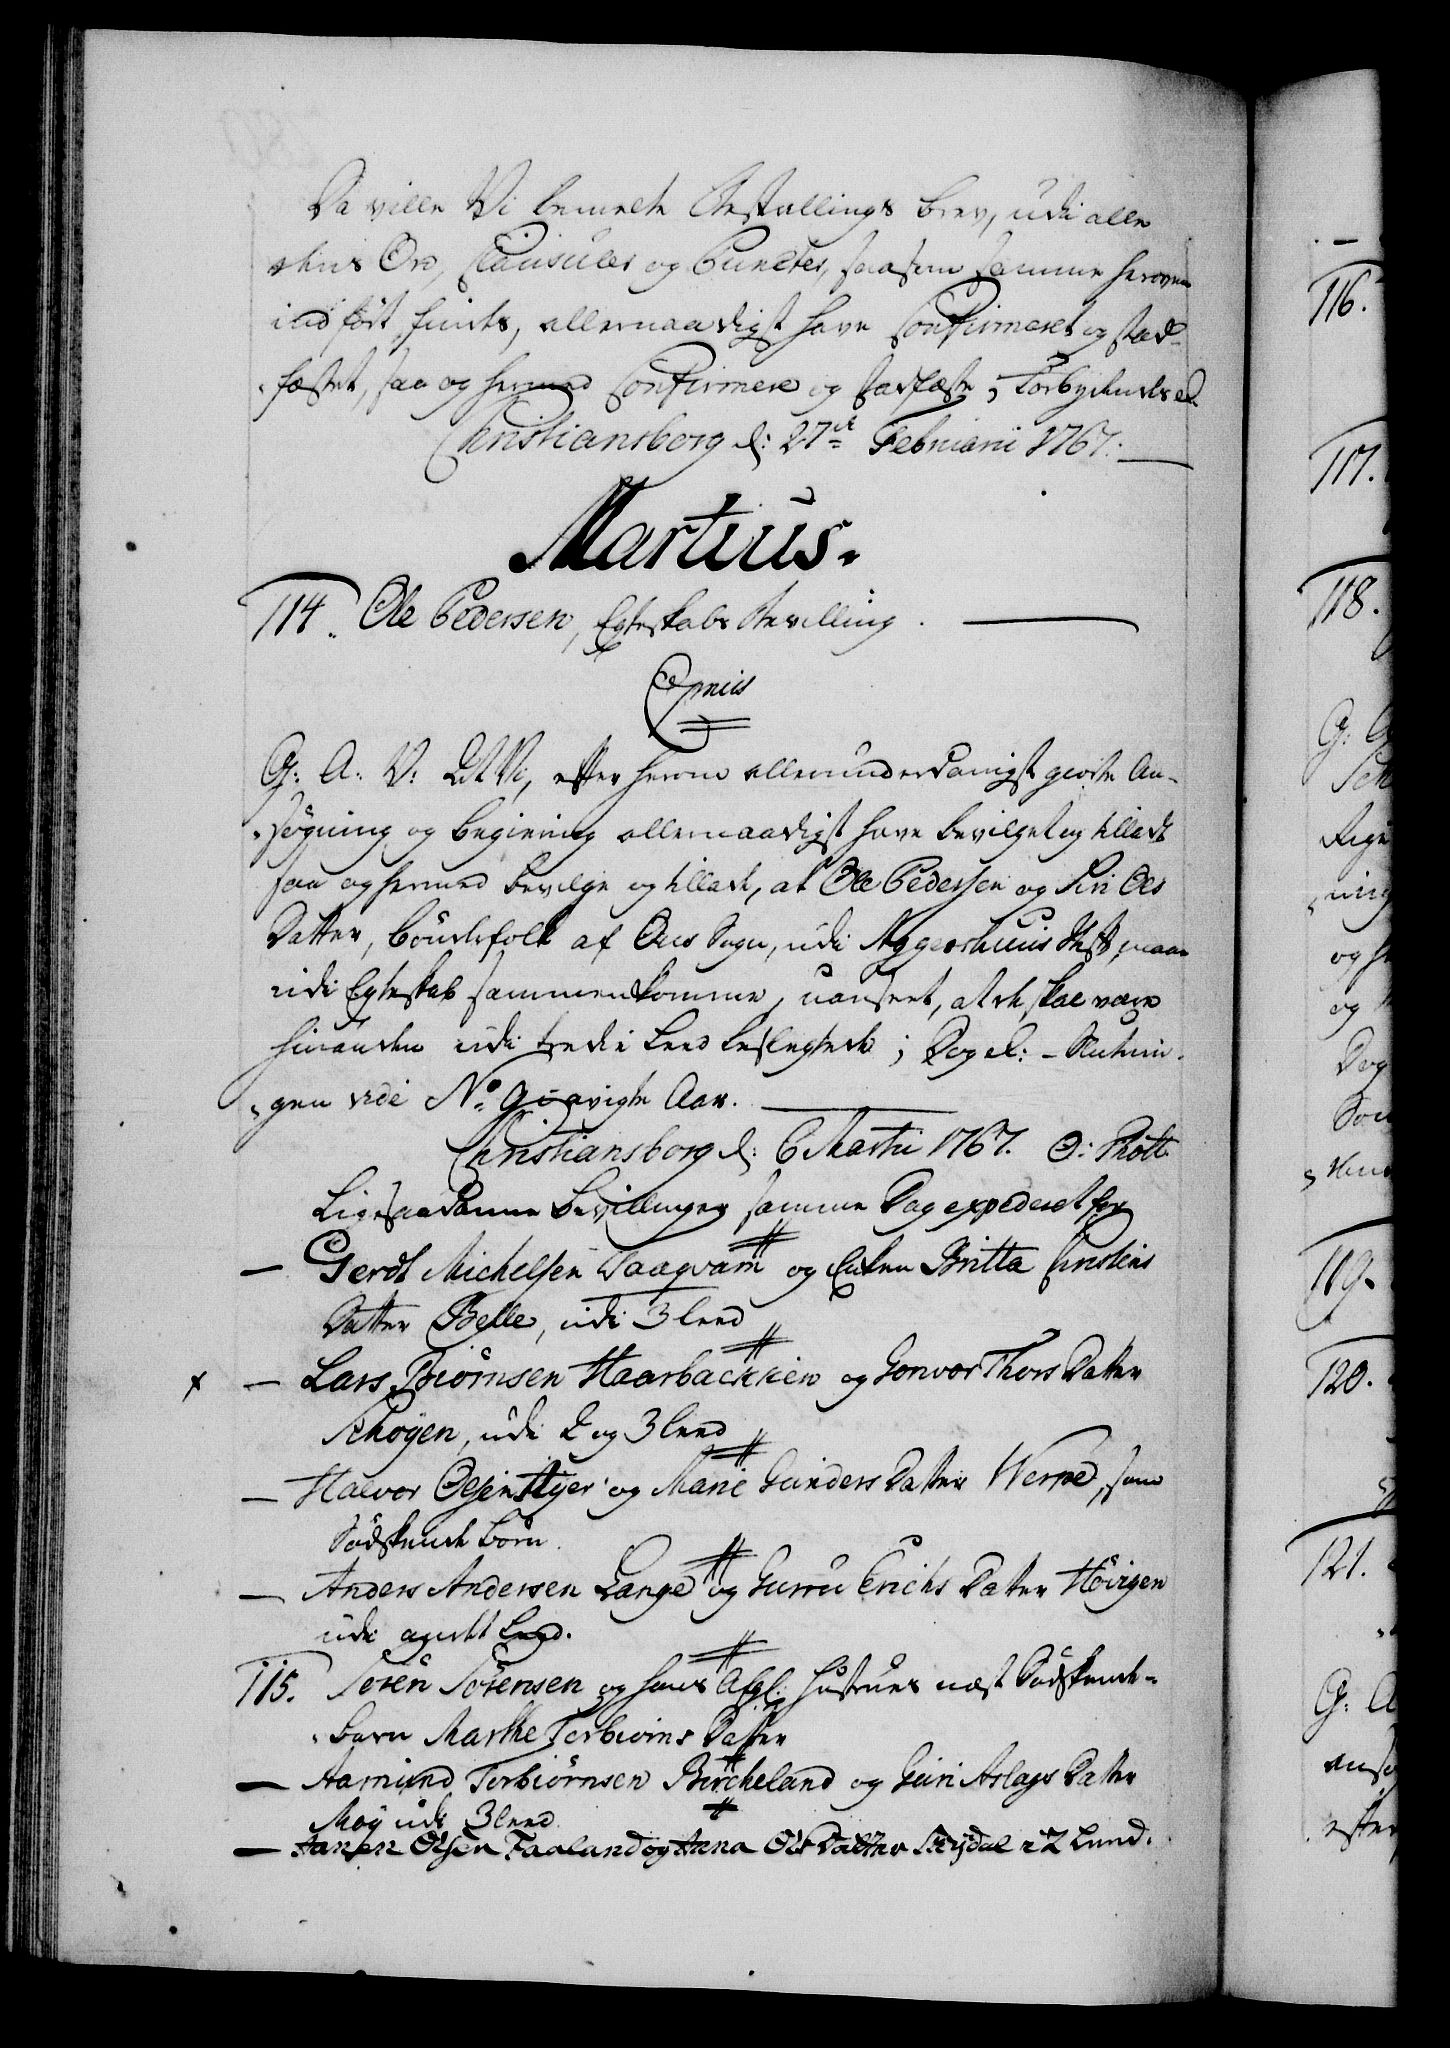 Da ville Vi bemelte Bestallings Brev, udi alle
dens Ord, Clausuler og Puncter, saasom samme herover
indført findes, allernaadigst have Confirmeret og stad-
fæstet, saa og hermed Confirmere og stadfæste; Forbydendes al
Christiansborg d: 27de Februarii 1767.
Martius.
114. Ole Pedersen, Egteskabs Bevilling.
Copiis
G: A: V: At Vi, efter herom allerunderdanigst giorte An-
søgning og begiering allernaadigst have bevilget og tilladt
saa og hermed bevilge og tillade, at Ole Pedersen og Siri Ols
Datter, bøndefolk af Ous Sogn, udi Aggershuus Stift, maae
udi Egteskab sammenkomme, uanseet, at de skal være
hinanden udi tredie Leed beslegtede; Dog el: - Slutnin-
gen vide No 9 i avigte Aar.
Christiansborg d: 6 Martii 1767. O: Thott
Ligesaadanne bevillinger samme Dag expederet for
- Gerdt Michelsen Vaagvam og Enken Britta Christens
Datter Belle, udi 3 Leed
x - Lars Biørnsen Haarbackken og Gonvor Thors Datter
Schøyen, udi 2 og 3 Leed
- Halvor Olsen og Marie Gunders Datter Werpe, som
Sødskende børn.
- Anders Andersen Lange og Gurru Erichs Datter Høirgen
udi andet Leed.
115. Søren Sørensen og hans Afgl: Hustrues næst Sødskende-
barn Marthe Torbiørns Datter
- Aamund Torbiørnsen Bircheland og Guri Aslags Datter
Moy udi 3 Leed
- Jansen Olsen Faaland og Anna Ols Datter i 2 Leed.
116.
117.
118.
G: A
og
og
Dog
119.
120.
121.
G: A
efter